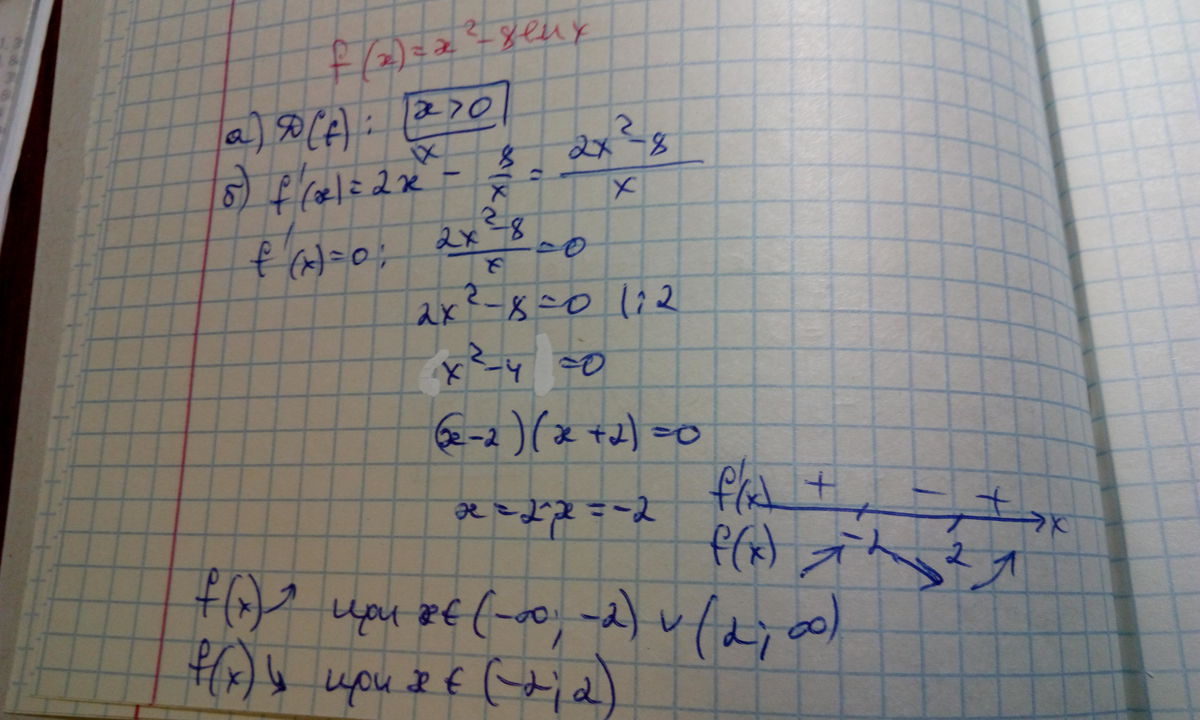 f(x)=x²-8ln x
а) D(f): x>0
б) f'(x)=2x^x - 8/x = (2x²-8)/x
f'(x)=0; (2x²-8)/x =0
2x²-8=0 |:2
x²-4 =0
(x-2)(x+2)=0
x=2; x=-2
f'(x) + - + x
f(x) ↗ -2 ↘ 2 ↗
f(x)↗ при x∈(-∞; -2) ∪ (2; ∞)
f(x)↘ при x∈(-2; 2)